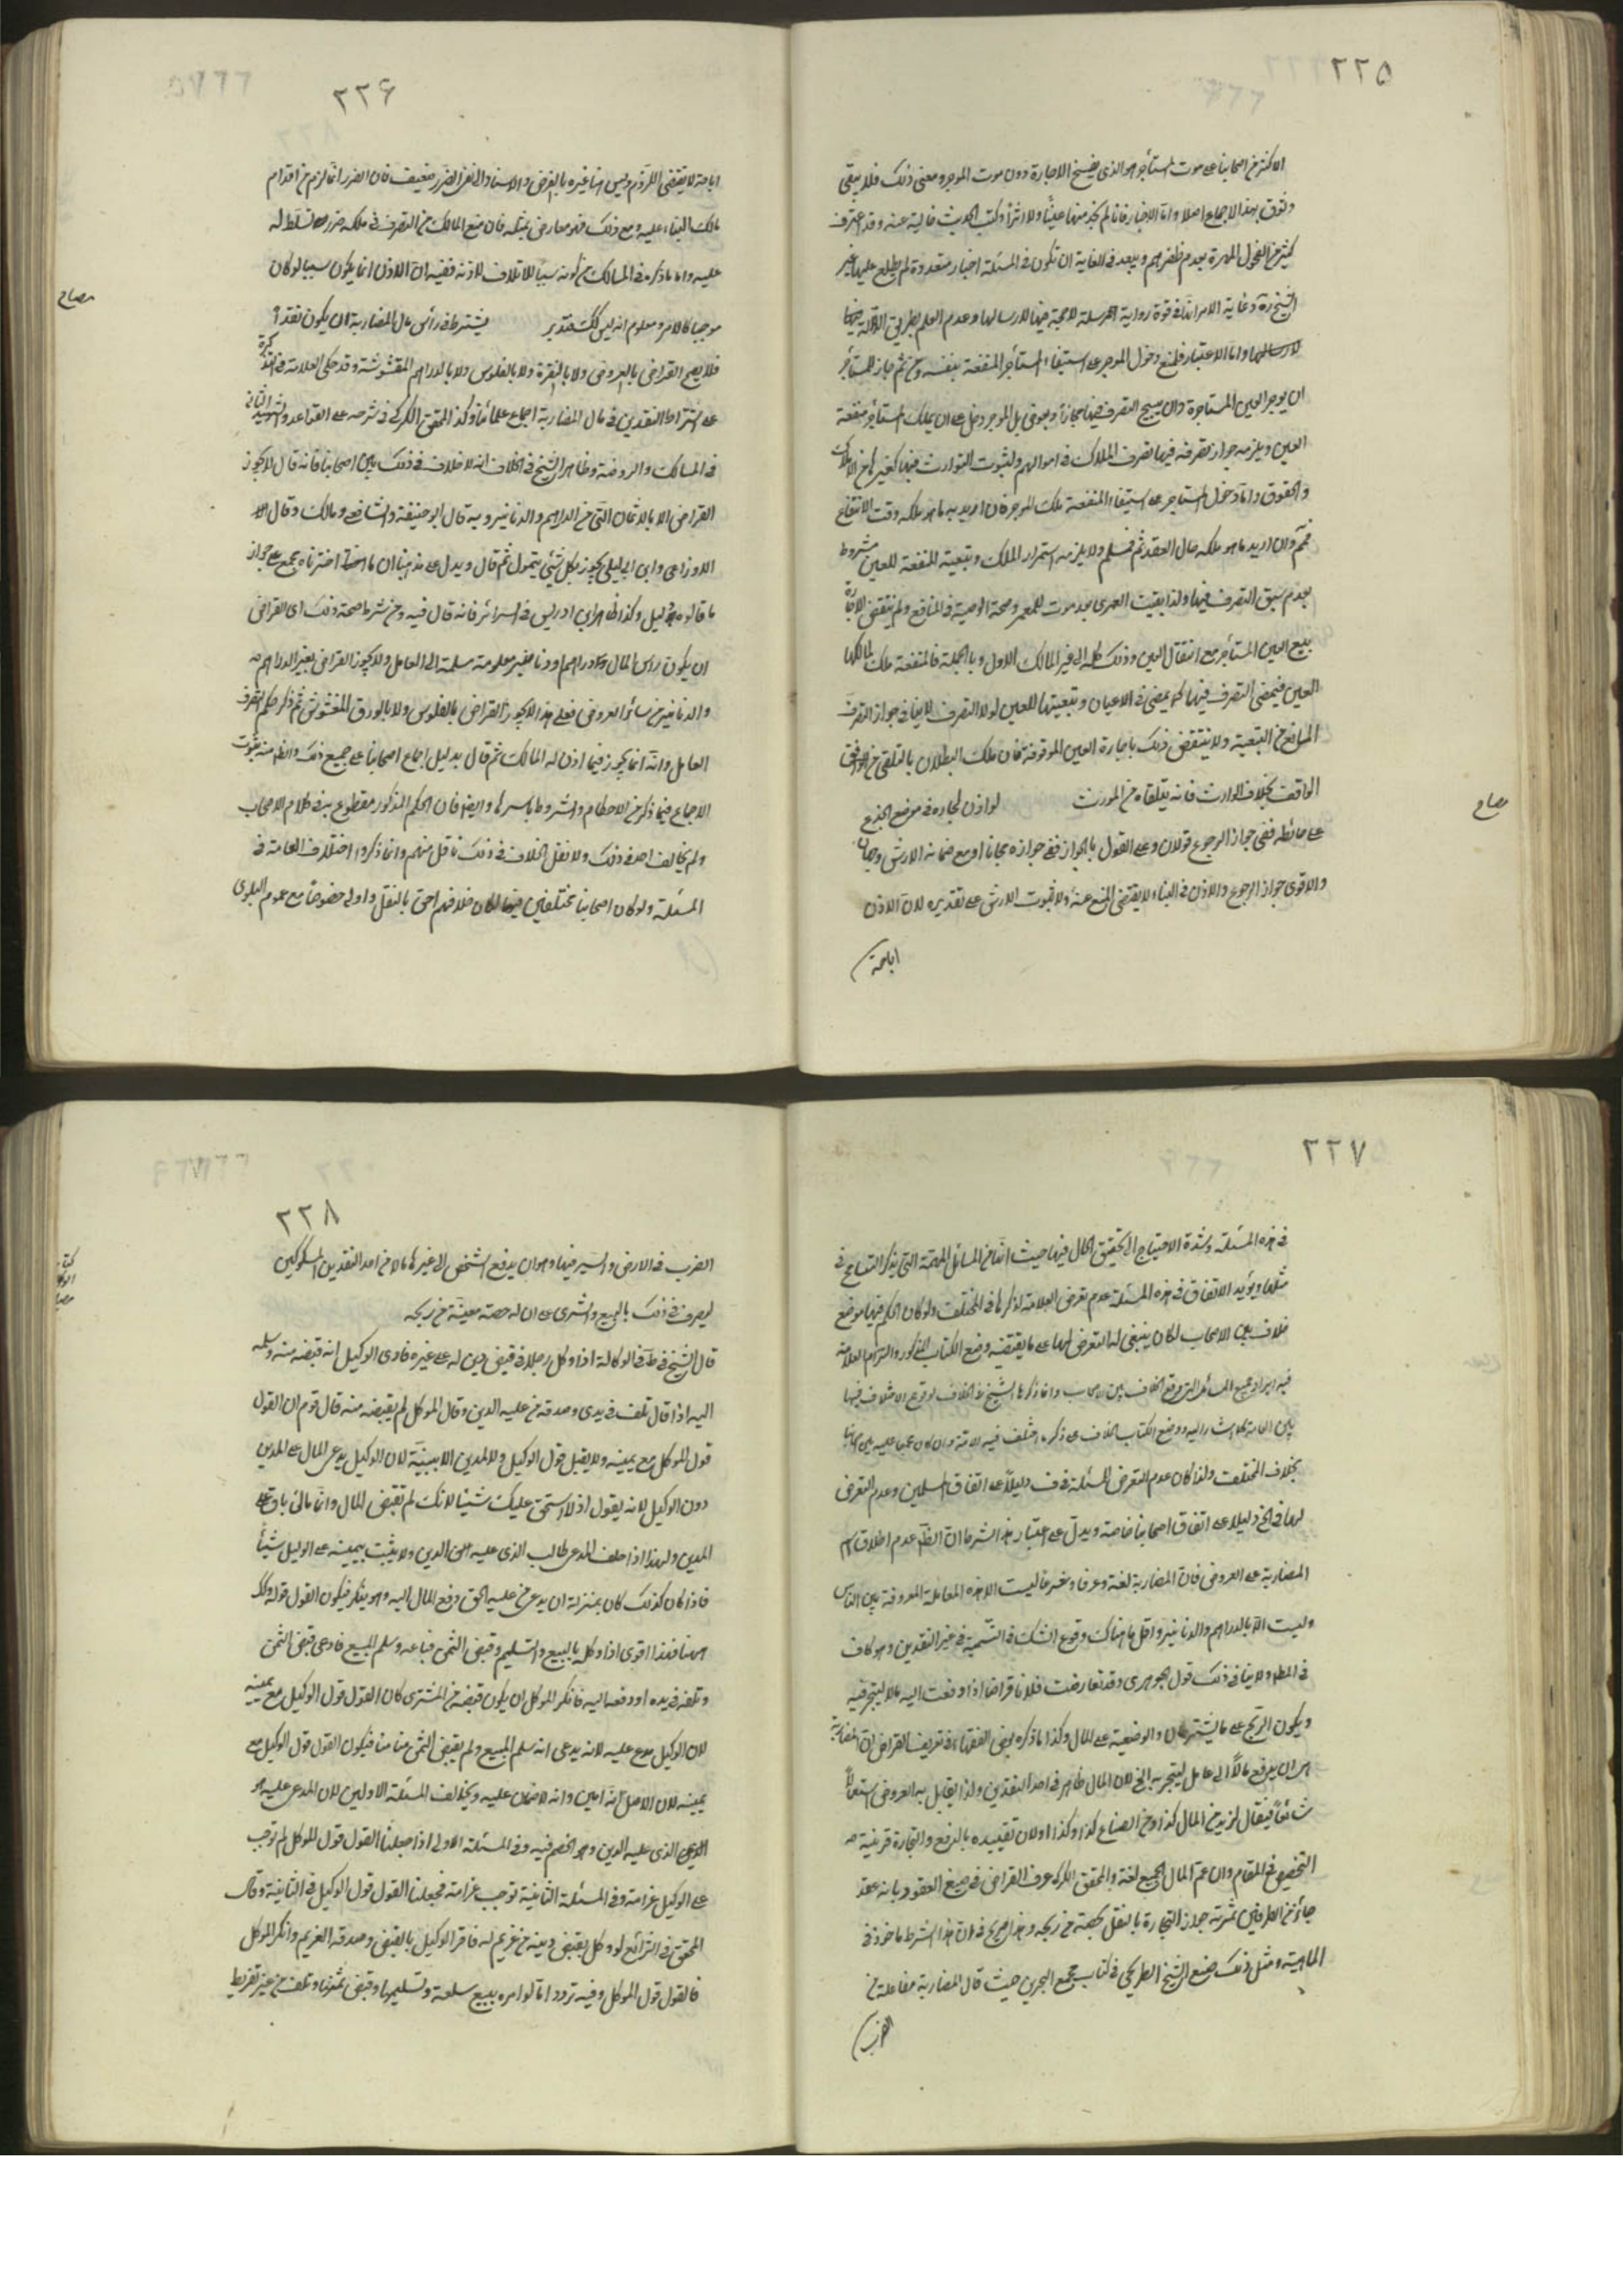 ٢٢٥
الاكثر من اصحابنا على موت المستأجر هو الذى يفسخ الاجارة دون موت الموجر ومعنى ذلك فلا يبقى
وثوق بهذا الاجماع اصلا واما الاخبار فانا لم نجد منها عينًا ولا اثرًا وكتب الحديث خالية عنه وقد اعترف
كثير من الفحول المهرة بعدم ظفرهم ويبعد فى الغاية ان تكون فى المسئلة اخبار متعددة لم يطلع عليها غير
الشيخ ره وغاية الامر انها فى قوة رواية مرسلة لا حجية فيها لارسالها وعدم العلم بطريق الدلالة فيها
لارسالها واما الاعتبار فلمنع دخول الموجر على استيفاء المستأجر المنفعة بنفسه ومن ثم جاز للمستأجر
ان يوجر العين المستاجرة وان يبيح التصرف فيها مجانًا وبعوض بل الموجر دخل على ان يملك المستأجر منفعة
العين ويلزمه جواز تصرفه فيها تصرف الملاك فى اموالهم ولثبوت التوارث فيها كغيرها من الاملاك
والحقوق واما دخول المستاجر على استيفاء المنفعة ملك الموجر فان اريد به ما هو ملكه وقت الانتفاع
فمم وان اريد ما هو ملكه حال العقد ثم فمسلم ولا يلزمه استمرار الملك وتبعية المنفعة للعين مشروط
بعدم سبق التصرف فيها ولذا بقيت العمرى بعد موت المعمر وصحة الوصية فى المنافع ولم ينتقض الاجارة
ببيع العين المستأجر مع انتقال العين وذلك كله الى غير المالك الاول وبالجملة فالمنفعة ملك لمالكها
العين فيمضى التصرف فيها كما يمضى فى الاعيان وتبعيتها للعين لولا التصرف لا ينافى جواز التصرف
المانع من التبعية ولا ينتقض ذلك باجارة العين الموقوفة فان ملك البطلان بالتلقى من الواقف
الواقف بخلاف الوارث فانه يتلقاه من المورث لو اذن لجاره فى موضع الجذع
على حائطه ففى جواز الرجوع قولان وعلى القول بالجواز ففى جوازه مجانا او مع ضمانه الارش وجهان
والاقوى جواز الرجوع والاذن فى البناء لا يقتضى المنع عنه ولا ثبوت الارش على تقديره لان الاذن
اباحة
٢٢٦
اباحة لا يقتضى اللزوم وليس هنا غيره بالفرض والاستناد الى نفى الضرر ضعيف فان الضرر انما لزم من اقدام
مالك البناء عليه ومع ذلك فهو معارض بمثله فان منع المالك من التصرف فى ملكه ضرر تسلط له
عليه واما ما ذكره فى المسالك من كونه سببًا للاتلاف لاذنه ففيه ان الاذن انما يكون سببا لو كان
موجبا كالامر ومعلوم انه ليس كك فتدبر يشترط فى رأس مال المضاربة ان يكون نقدا
فلا يصح القراض بالعروض ولا بالنقرة ولا بالفلوس ولا بالدراهم المغشوشة وقد حكى العلامة فى التذكرة
على اشتراط النقدين فى مال المضاربة اجماع علمائنا وكذا المحقق الكركى فى شرحه على القواعد والشهيد الثانى
فى المسالك والروضة وظاهر الشيخ فى الخلاف انه لا خلاف فى ذلك بين اصحابنا فانه قال لا يجوز
القراض الا بالاثمان التى هى الدراهم والدنانير وبه قال ابو حنيفة والشافعى ومالك وقال
الاوزاعى وابن ابى ليلى يجوز بكل شئ يتمول ثم قال ويدل على مذهبنا ان ما اخترناه مجمع على جواز
ما قالوه دليل وكذا ظاهر ابن ادريس فى السرائر فانه قال فيه ومن شرط صحة ذلك اى القراض
ان يكون رأس المال دراهم او دنانير معلومة مسلمة الى العامل ولا يجوز القراض بغير الدراهم
والدنانير من سائر العروض فعلى هذا لا يجوز القراض بالفلوس ولا بالورق المغشوش ثم ذكر حكم تصرف
العامل وانه انما يجوز فيما اذن له المالك ثم قال بدليل اجماع اصحابنا على جميع ذلك والظ منه ثبوت
الاجماع فيما ذكر من الاحكام والشروط باسرها وايض فان الحكم المذكور مقطوع به فى كلام الاصحاب
ولم يخالف احد فى ذلك ولا نقل الخلاف فى ذلك ناقل منهم وانما ذكروا اختلاف العامة فى
المسئلة ولو كان اصحابنا مختلفين فيها لكان خلافهم احق بالنقل واولى خصوصًا مع عموم البلوى
٢٢٧
فى هذه المسئلة وشدة الاحتياج الى تحقيق الحال فيها حيث انها من المسائل المهمة التى ينكر التسامح فى
مثلها ويؤيد الاتفاق فى هذه المسئلة عدم تعرض العلامة لذكرها فى المختلف ولو كان الحكم فيها موضع
خلاف بين الاصحاب لكان ينبغى له التعرض لها على ما يقتضيه وضع الكتاب المذكور والتزام العلامة
فيه ايراد جميع المسائل التى وقع الخلاف بين الاصحاب وانما ذكرها الشيخ فى الخلاف لوقوع الاختلاف فيها
بين العامة كما اشار اليه ووضع الكتاب الخلاف على ذكر ما اختلف فيه الامة وان كان مجمعا عليه بين اصحابنا
بخلاف المختلف ولذا كان عدم التعرض للمسئلة فى ف دليلاً على اتفاق المسلمين وعدم التعرض
لها فى لف دليلا على اتفاق اصحابنا خاصة ويدل على اعتبار هذا الشرط ان الظ عدم اطلاق اسم
المضاربة على العروض فان المضاربة لغة وعرفا وشرعا ليست الا هذه المعاملة المعروفة بين الناس
وليست الا بالدراهم والدنانير واقل ما هناك وقوع الشك فى التسمية فى غير النقدين وهو كاف
فى المط ولا ينافى ذلك قول الجوهرى وقد تعارضت فلانا قراضا اذا دفعت اليه مالا ليتجر فيه
ويكون الربح على ما يشترطان والوضيعة على المال وكذا ما ذكره بعض الفقهاء فى تعريف القراض ان المضاربة
هى ان يدفع مالًا الى عامل ليتجر به الخ لان المال ظاهر فى احد النقدين ولذا يقابل به العروض استعمالا
شائعًا فيقال لزيد من المال كذا ومن الضياع كذا وكذا ولان تقييده بالدفع والتجارة قرينة
التخصيص فى المقام وان عم المال الجميع لغة والمحقق الكركى عرف القراض فى صيغ العقود بانه عقد
جائز من الطرفين ثمرته جواز التجارة بالنقل بحصة من ربحه وهذا صريح فى ان هذا الشرط ماخوذ فى
الماهية ومثل ذلك صنع الشيخ الطريحى فى كتاب مجمع البحرين حيث قال المضاربة مفاعلة من
الضرب
٢٢٨
الضرب فى الارض والسير فيها وهو ان يدفع الشخص الى غيره مالا من احد النقدين المسكوكين
ليصرف فى ذلك بالبيع والشرى على ان له حصة معينة من ربحه
قال الشيخ فى ط فى الوكالة اذا وكل رجلا فى قبض دين له على غيره فادعى الوكيل انه قبضه منه وسلمه
اليه اذا قال تلف فى يدى وصدقه من عليه الدين وقال الموكل لم يقبضه منه قال قوم ان القول
قول الموكل مع يمينه ولا يقبل قول الوكيل ولا المدين الا ببينة لان الوكيل يدعى المال على المدين
دون الوكيل لانه يقول اذ لا استحق عليك شيئا لانك لم تقبض المال وانما مالى باق على
المدين ولهذا اذا حلف المدعى طالب الذى عليه الدين ولا يثبت بيمينه على الوكيل شيئًا
فاذا كان كذلك كان بمنزلة ان يدعى من عليه الحق دفع المال اليه وهو ينكر فيكون القول قوله وكك
ههنا فهذا اقوى اذا وكله بالبيع والتسليم وقبض الثمن فباعه وسلم المبيع فادعى قبض الثمن
وتلفه فى يده او دفعه اليه فانكر الموكل ان يكون قبضه من المشترى كان القول قول الوكيل مع يمينه
لان الوكيل مدع عليه لانه يدعى انه سلم المبيع ولم يقبض الثمن ضامنا فيكون القول قول الوكيل مع
يمينه لان الاصل انه امين وانه لا ضمان عليه ويخالف المسئلة الاولى لان المدعى عليه هو
الذى عليه الدين وهو الخصم فيه وفى المسئلة الاولى اذا جعلنا القول قول الموكل لم توجب
على الوكيل غرامة وفى المسئلة الثانية توجب غرامة فجعلنا القول قول الوكيل فى الثانية وقال
المحقق فى الشرائع لو وكل بقبض دينه من غريم له فاقر الوكيل بالقبض وصدقه الغريم وانكر الموكل
فالقول قول الموكل وفيه تردد اما لو امره ببيع سلعة وتسليمها وقبض ثمنها وتلف من غير تفريط